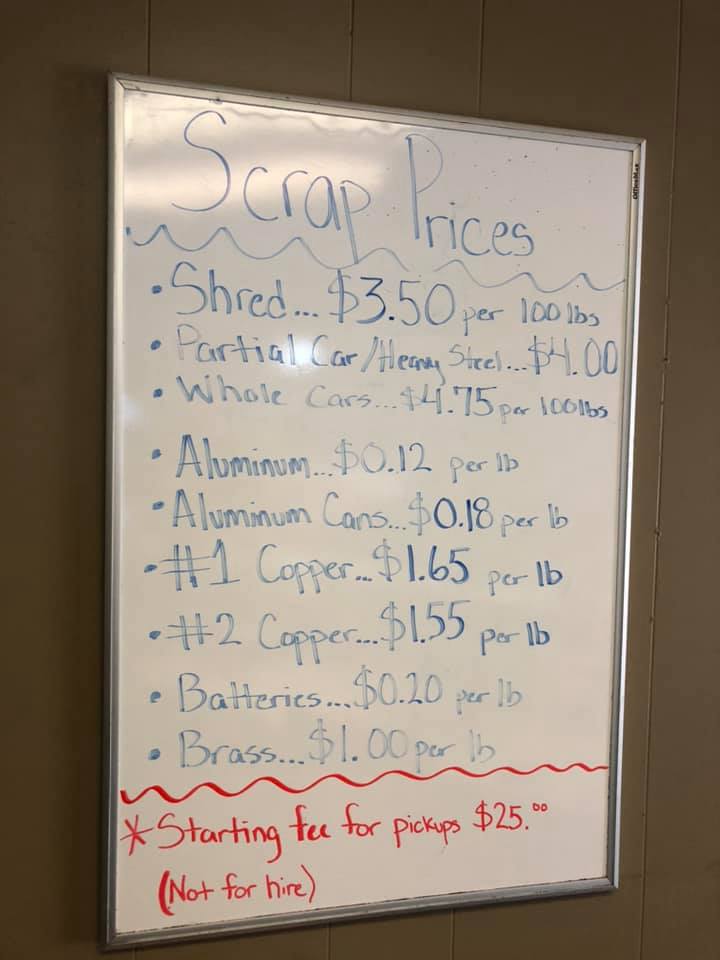 Scrap Prices
• Shred... $3.50 per 100 lbs
• Partial Car/Heavy Steel... $4.00
• Whole Cars... $4.75 per 100 lbs
• Aluminum... $0.12 per lb
• Aluminum Cans... $0.18 per lb
• #1 Copper... $1.65 per lb
• #2 Copper.... $1.55 per lb
• Batteries.... $0.20 per lb
• Brass... $1.00 per lb
* Starting fee for pickups $25.00
(Not for hire)
OfficeMax